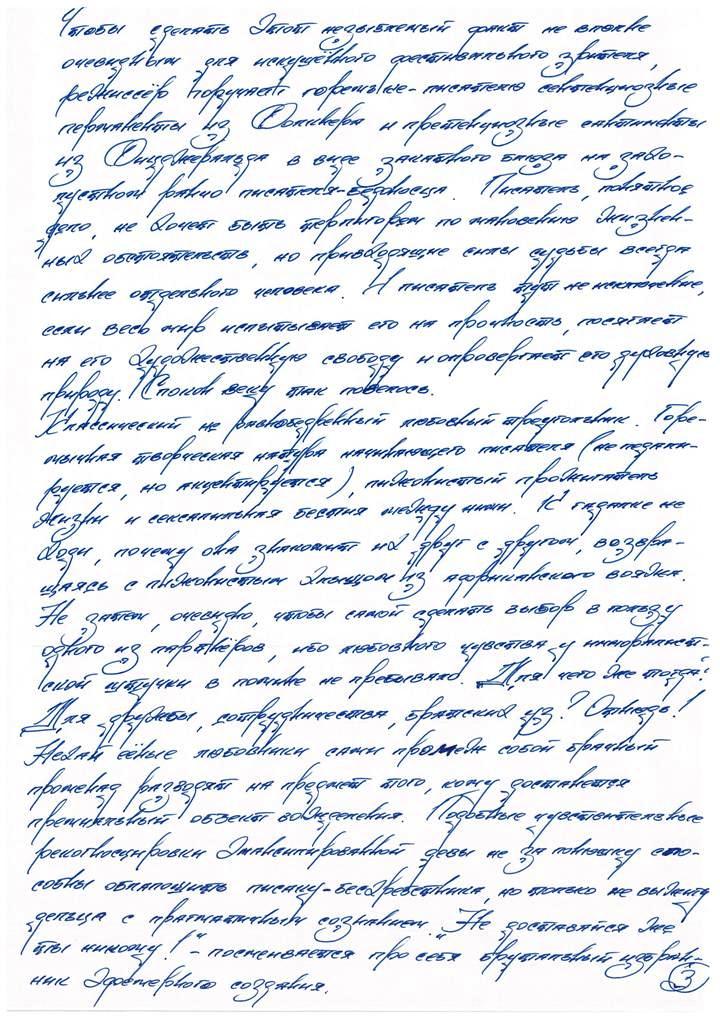 Чтобы сделать этот незыблемый факт не вполне
очевидным для искушённого фестивального зрителя,
режиссёр поручает горемыке-писателю сентенциозные
перманенты из Фолкнера и претенциозные сантименты
из Фицджеральда в виде закатного блюда на захо-
лустном ранчо писателя-бедоносца. Писатель, понятное
дело, не хочет быть терпигорем по мановению жизнен-
ных обстоятельств, но приводящие силы судьбы всегда
сильнее отдельного человека. И писатель тут не исключение,
если весь мир испытывает его на прочность, посягает
на его художественную свободу и опровергает его духовную
природу. Спокон веку так повелось.
Классический не равнобедренный любовный треугольник. Горе-
мычная творческая натура начинающего писателя (не педали-
руется, но акцентируется), пижонистый прожигатель
жизни и сексапильная бестия между ними. К гадалке не
ходи, почему она знакомит их друг с другом, возвра-
щаясь с пижонистым хлыщом из африканского вояжа.
Не затем, очевидно, чтобы самой сделать выбор в пользу
одного из партнёров, ибо любовного чувства у имморалист-
ской штучки в помине не пребывало. Для чего же тогда?
Для дружбы, сотрудничества, братских уз? Отнюдь!
Нехай ейные любовники сами промеж собой брачный
променад разводят на предмет того, кому достанется
премиальный объект вожделения. Подобные чувствительные
рекогносцировки эмансипированной девы не за понюшку спо-
собны облапошить писаку-бессребреника, но только не выжигу
дельца с прагматичным сознанием. "Не доставайся же
ты никому!" - посмеивается про себя брутальный избран-
ник эфемерного создания.
3